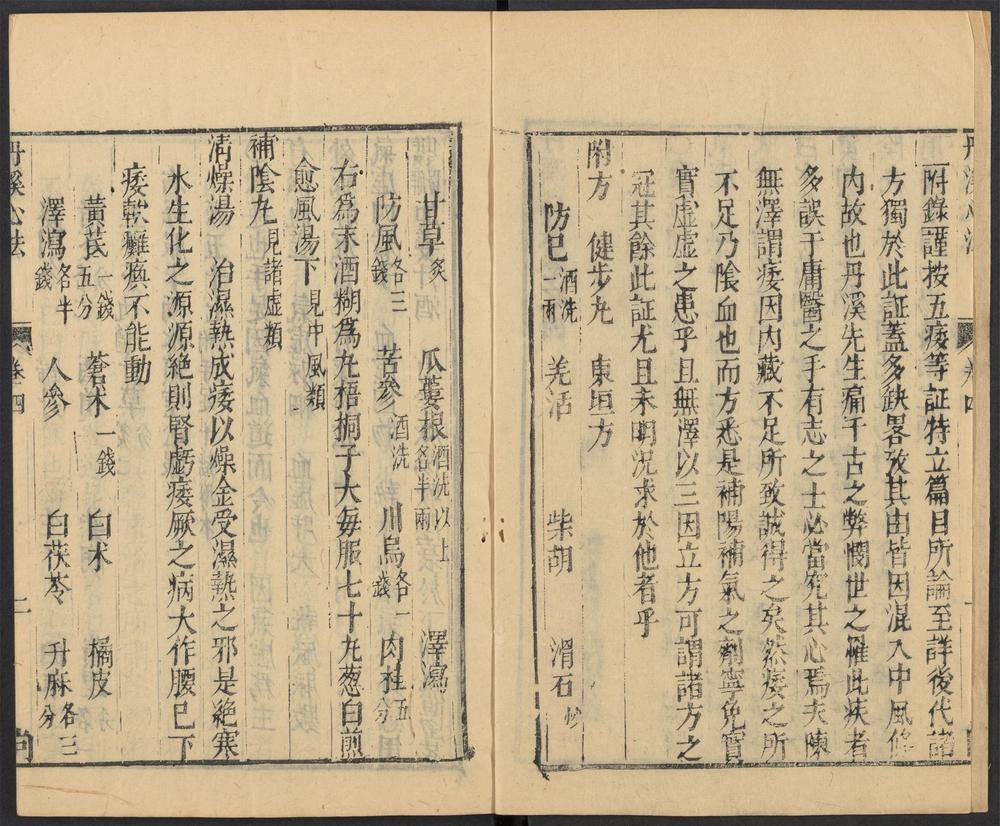 附錄謹按五痿等証特立篇目所論至詳後代諸
方獨於此証蓋多缺畧攷其由皆因混入中風條
內故也丹溪先生痛千古之弊憫世之罹此疾者
多誤于庸醫之手有志之士必當究其心焉夫陳
無澤謂痿因內藏不足所致誠得之矣然痿之所
不足乃陰血也而方悉是補陽補氣之劑寧免實
實虛虛之患乎且無澤以三因立方可謂諸方之
冠其餘此証尤且未明況求於他者乎
附方 健步丸 東垣方
防已酒洗一兩 羌活 柴胡 滑石炒
甘草炙 瓜蔞根酒洗以上各半兩 澤瀉
防風各三錢 苦參酒洗 川烏各一錢 肉桂五分
右為末酒糊為丸梧桐子大每服七十九葱白煎
愈風湯下見中風類
補陰丸見諸虛類
清燥湯 治濕熱成痿以燥金受濕熱之邪是絕寒
水生化之源源絕則腎虧痿厥之病大作腰已下
痿軟癱瘓不能動
黃芪一錢五分 蒼朮一錢 白朮 橘皮
澤瀉各半錢 人參 白茯苓 升麻各三分
丹溪心法 卷四 二